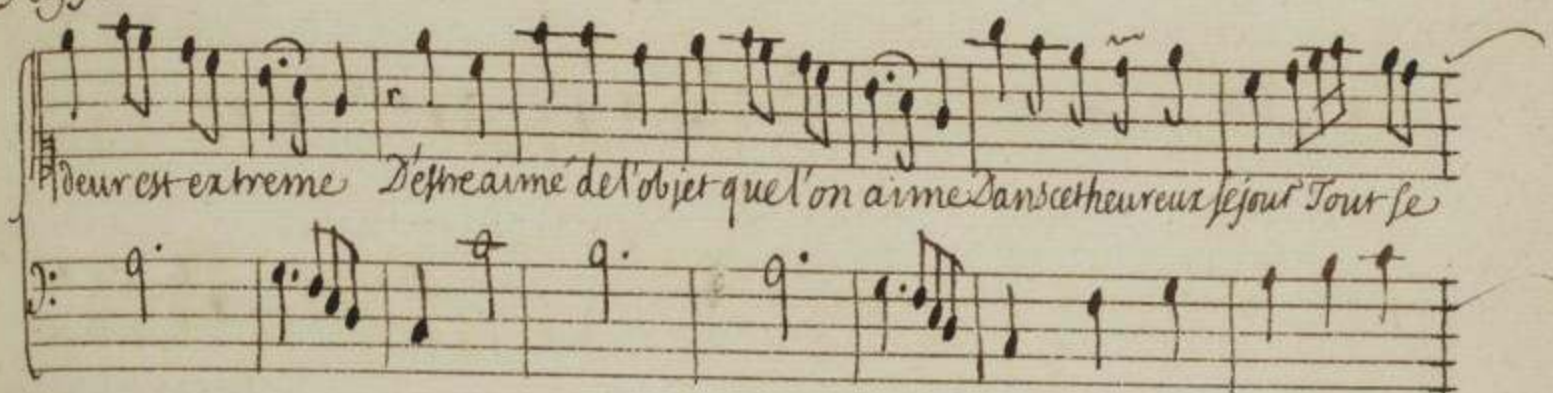 deur est extreme D'estre aimé de l'objet que l'on aime Dans cet heureux sejour Tout se